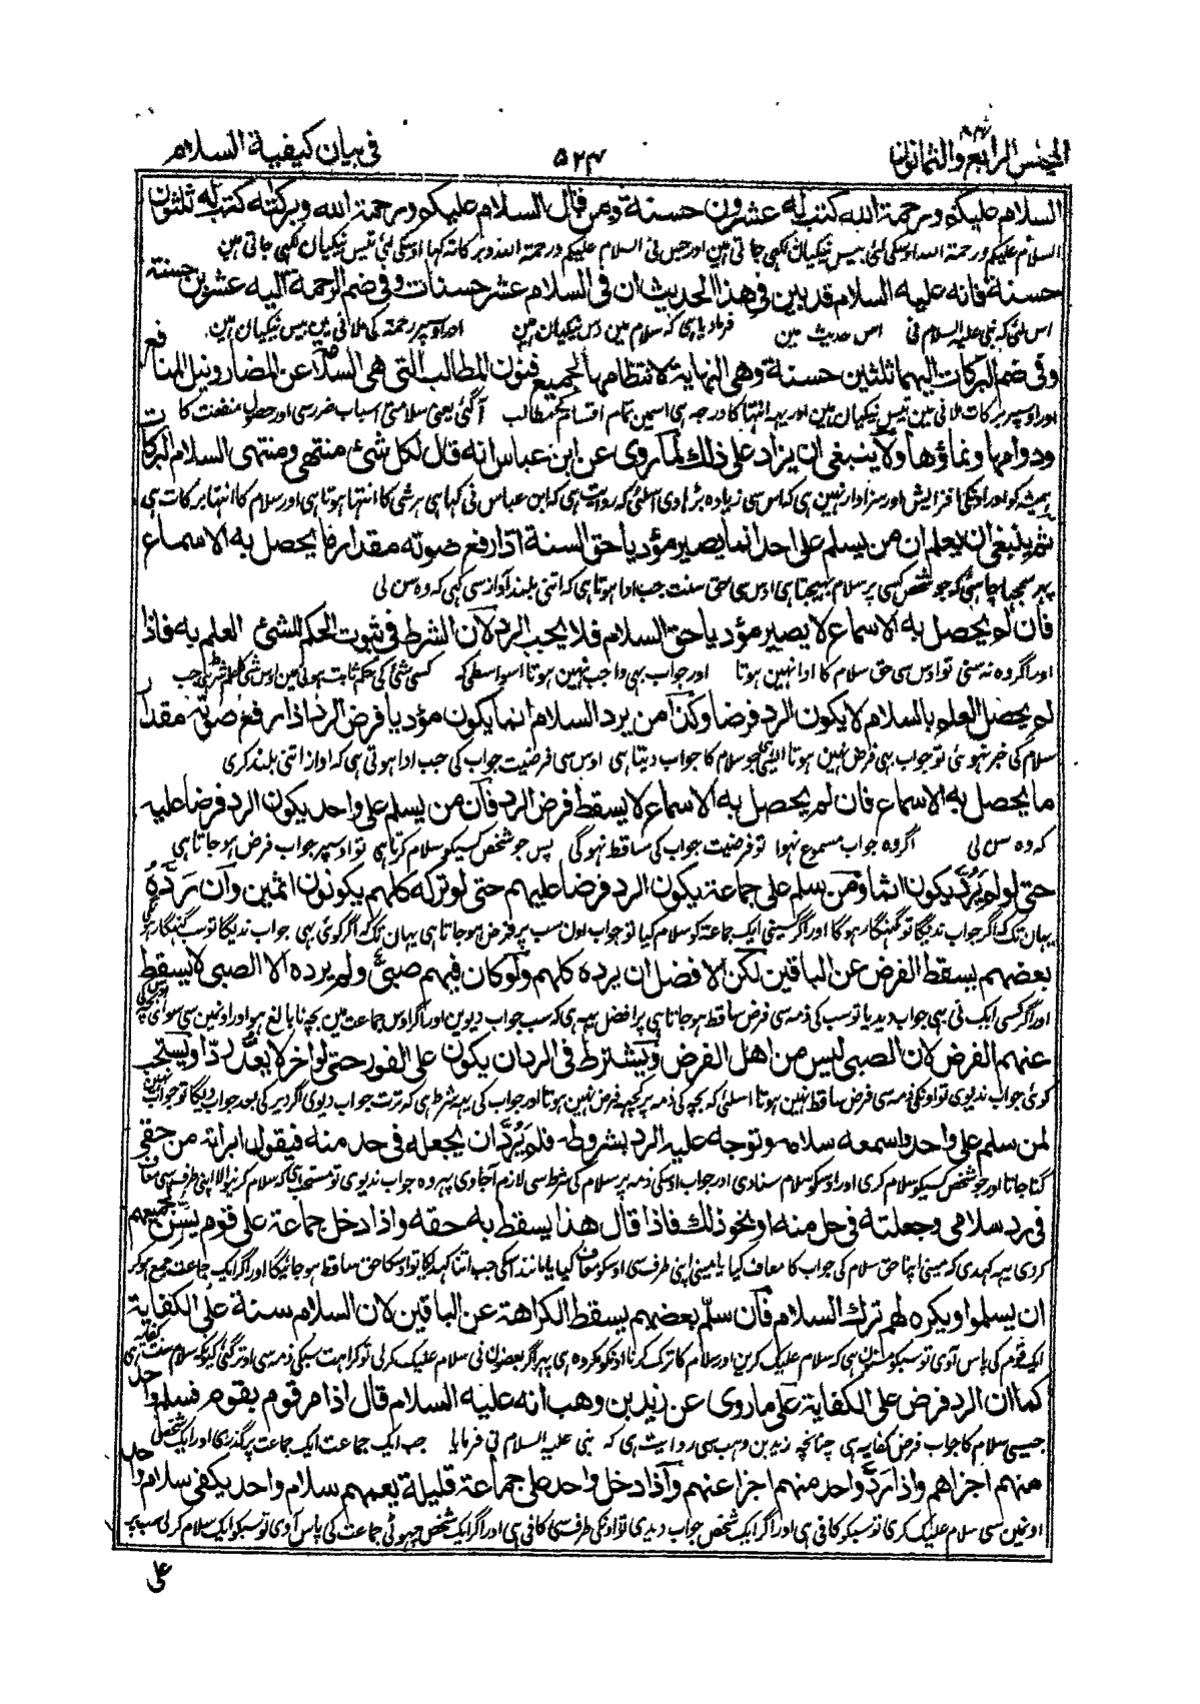 المجلس الرابع والثمانون
۵۲۴
فى بيان كيفية السلام
السلام عليكم ورحمة الله كتب له عشرون حسنة ومن قال السلام عليكم ورحمة الله وبركاته كتب له ثلثون
السلام علیکم ورحمة الله اوسکی لئی بیس نیکیان لکھی جاتی ہین اور جس نی السلام علیکم ورحمة الله وبرکاته کہا اوسکی لئی تیس نیکیان لکھی جاتی ہین
حسنة فانه عليه السلام قد بين فى هذا الحديث ان فى السلام عشر حسنات وفى ضم الرحمة اليه عشرين حسنة
اس لئی کہ نبی علیہ السلام نی اس حدیث مین فرمادیا ہی کہ سلام مین دس نیکیان ہین اور اوسپر رحمة کی ملانی مین بیس نیکیان ہین
وفى ضم البركات اليهما ثلثين حسنة وهى النهاية لانتظامها لجميع فنون المطالب التى هى السلامة عن المضار ونيل المنافع
اور اوسپر برکات ملانی مین تیس نیکیان ہین اور یہہ انتہا کا درجہ ہی اسمین تمام اقسام کی مطالب آگئی یعنی سلامتی اسباب ضرر سی اور حصول منفعت کا
ودوامها ونماؤها ولا ينبغى ان يزاد على ذلك لما روى عن ابن عباس انه قال لكل شئ منتهى ومنتهى السلام البركات
ہمیشہ کو اور اونکی افزایش اور سزاوار نہین ہی کہ اس سی زیادہ بڑہاوی اسلئی کہ روایت ہی کہ ابن عباس نی کہا ہی ہر شی کا انتہا ہوتا ہی اور سلام کا انتہا برکات ہی
ثم ينبغى ان يعلم ان من يسلم على احد انما يصير مؤديا حق السنة اذا رفع صوته مقدار ما يحصل به الاسماع
پہر سمجہنا چاہئی کہ جو شخص کسی پر سلام بہیجتا ہی اوس سی حق سنت جب ادا ہوتا ہی کہ اتنی بلند آواز سی کہی کہ وہ سن لی
فان لم يحصل به الاسماع لا يصير مؤديا حق السلام فلا يجب الرد لان الشرط فى ثبوت الحكم للشئ العلم به فاذا
اور اگر وہ نہ سنی تو اوس سی حق سلام کا ادا نہین ہوتا اور جواب بہی واجب نہین ہوتا اسواسطی کہ کسی شئ کی حکم ثابت ہونی مین اوس شئ کا علم شرط ہی جب
لم يحصل العلم بالسلام لا يكون الرد فرضا وكذا من يرد السلام انما يكون مؤديا فرض الرد اذا رفع صوته مقدار
سلام کی خبر نہوئی تو جواب بہی فرض نہین ہوتا ایسی ہی جو سلام کا جواب دیتا ہی اوس سی فرضیت جواب کی جب ادا ہوتی ہی کہ اواز اتنی بلند کری
ما يحصل به الاسماع فان لم يحصل به الاسماع لا يسقط فرض الرد فان من يسلم على واحد يكون الرد فرضا عليه
کہ وہ سن لی اگر وہ جواب مسموع نہوا تو فرضیت جواب کی ساقط نہوگی پس جو شخص کسیکو سلام کرتا ہی تو اوسپر جواب فرض ہوجاتا ہی
حتى لو لم يرد يكون اثما ومن سلم على جماعة يكون الرد فرضا عليهم حتى لو تركه كلهم يكونون اثمين وان رده
یہان تک کہ اگر جواب ندیگا تو گنہگار ہوگا اور اگر کسینی ایک جماعة کو سلام کیا تو جواب اون سب پر فرض ہوجاتا ہی یہان تک کہ اگر کوئی بہی جواب ندیگا تو سب گنہگار
بعضهم يسقط الفرض عن الباقين لكن الافضل ان يرده كلهم ولو كان فيهم صبى ولم يرده الا الصبى لا يسقط
اور اگر کسی ایک نی بہی جواب دیدیا تو سب کی ذمہ سی فرض ساقط ہوجاتا ہی پر افضل یہہ ہی کہ سب جواب دیوین اور اگر اوس جماعت مین بچہ نابالغ ہو اور اونمین سی سوای
عنهم الفرض لان الصبى ليس من اهل الفرض ويشترط فى الرد ان يكون على الفور حتى لو اخر لا يعد ردا ويستحب
کوئی جواب ندیوی تو اونکی ذمہ سی فرض ساقط نہین ہوتا اسلئی کہ بچہ کی ذمہ پر کچہہ فرض نہین ہوتا اور جواب کی یہہ شرط ہی کہ ترت جواب دیوی اگر دیر کی بعد جواب دیگا تو جواب نہین
لمن سلم على واحد واسمعه سلامه وتوجه عليه الرد بشروطه فلم يرد ان يجعله فى حل منه فيقول ابرأته من حقى
گنا جاتا اور جو شخص کسیکو سلام کری اور اوسکو سلام سنادی اور جواب اوسکی ذمہ پر سلام کی شرط سی لازم آجاوی پہر وہ جواب ندیوی تو مستحب ہی کہ سلام کرنیوالا اپنی طرف سی معاف
فى رد سلامى وجعلته فى حل منه او نحو ذلك فاذا قال هذا يسقط به حقه واذا دخل جماعة على قوم يسن لجميعهم
کردی یہہ کہدی کہ مینی اپنا حق سلام کی جواب کا معاف کیا یا مینی اپنی طرف سی اوسکو معاف کیا یا مانند اسکی جب اتنا کہدیگا تو اوسکا حق ساقط ہوجائیگا اور اگر ایک جماعت جمع ہوکر
ان يسلموا ويكره لهم ترك السلام فان سلم بعضهم يسقط الكراهة عن الباقين لان السلام سنة على الكفاية
ایک قوم کی پاس آوی تو سبکو مسنون ہی کہ سلام علیک کرین اور سلام کا ترک کرنا اونکو مکروہ ہی پہر اگر بعضون نی سلام علیک کرلی تو کراہت سبکی ذمہ سی اوتر گئی کیونکہ سلام سنت کفایہ ہی
كما ان الرد فرض على الكفاية على ما روى عن زيد بن وهب انه عليه السلام قال اذا مر قوم بقوم فسلم واحد
جیسی سلام کا جواب فرض کفایہ ہی چنانچہ زید بن وہب سی روایت ہی کہ نبی علیہ السلام نی فرمایا جب ایک جماعت ایک جماعت پر گذریگا اور ایک شخص
منهم اجزاهم واذا رد واحد منهم اجزا عنهم واذا دخل واحد على جماعة قليلة يعمهم سلام واحد يكفى سلام واحد
اونمین سی سلام علیک کری تو سبکو کافی ہی اور اگر ایک شخص جواب دیدی تو اونکی طرف سی کافی ہی اور اگر ایک شخص چہوٹی جماعت کی پاس آوی تو سبکو ایک سلام کرلی سب پر
على